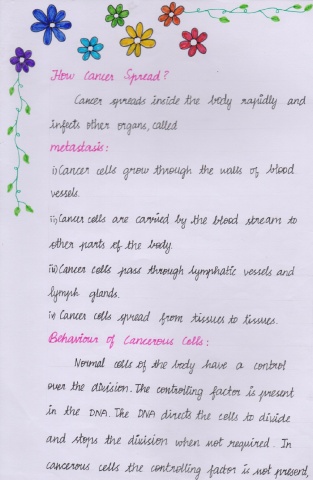 How Cancer Spread?
Cancer spreads inside the body rapidly and
infects other organs, called
metastasis:
i) Cancer cells grow through the walls of blood
vessels.
ii) Cancer cells are carried by the blood stream to
other parts of the body.
iii) Cancer cells pass through lymphatic vessels and
lymph glands.
iv) Cancer cells spread from tissues to tissues.
Behaviour of Cancerous Cells:
Normal cells of the body have a control
over the division. The controlling factor is present
in the DNA. The DNA directs the cells to divide
and stops the division when not required. In
cancerous cells the controlling factor is not present,